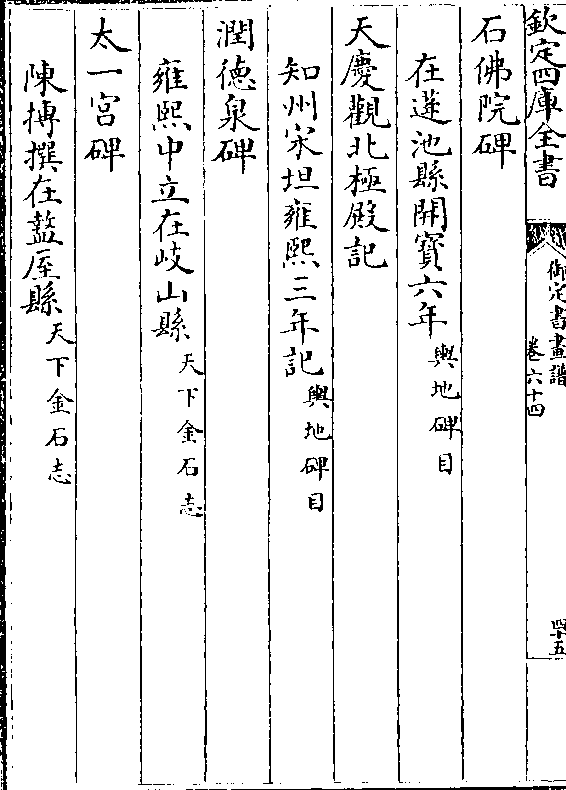 欽定四庫全書
御定書畫譜
卷六十四
四十五
石佛院碑
在蓮池縣開寶六年輿地碑目
天慶觀北極殿記
知州宋坦雍熙三年記輿地碑目
潤德泉碑
雍熙中立在岐山縣天下金石志
太一宮碑
陳摶撰在盩厔縣天下金石志